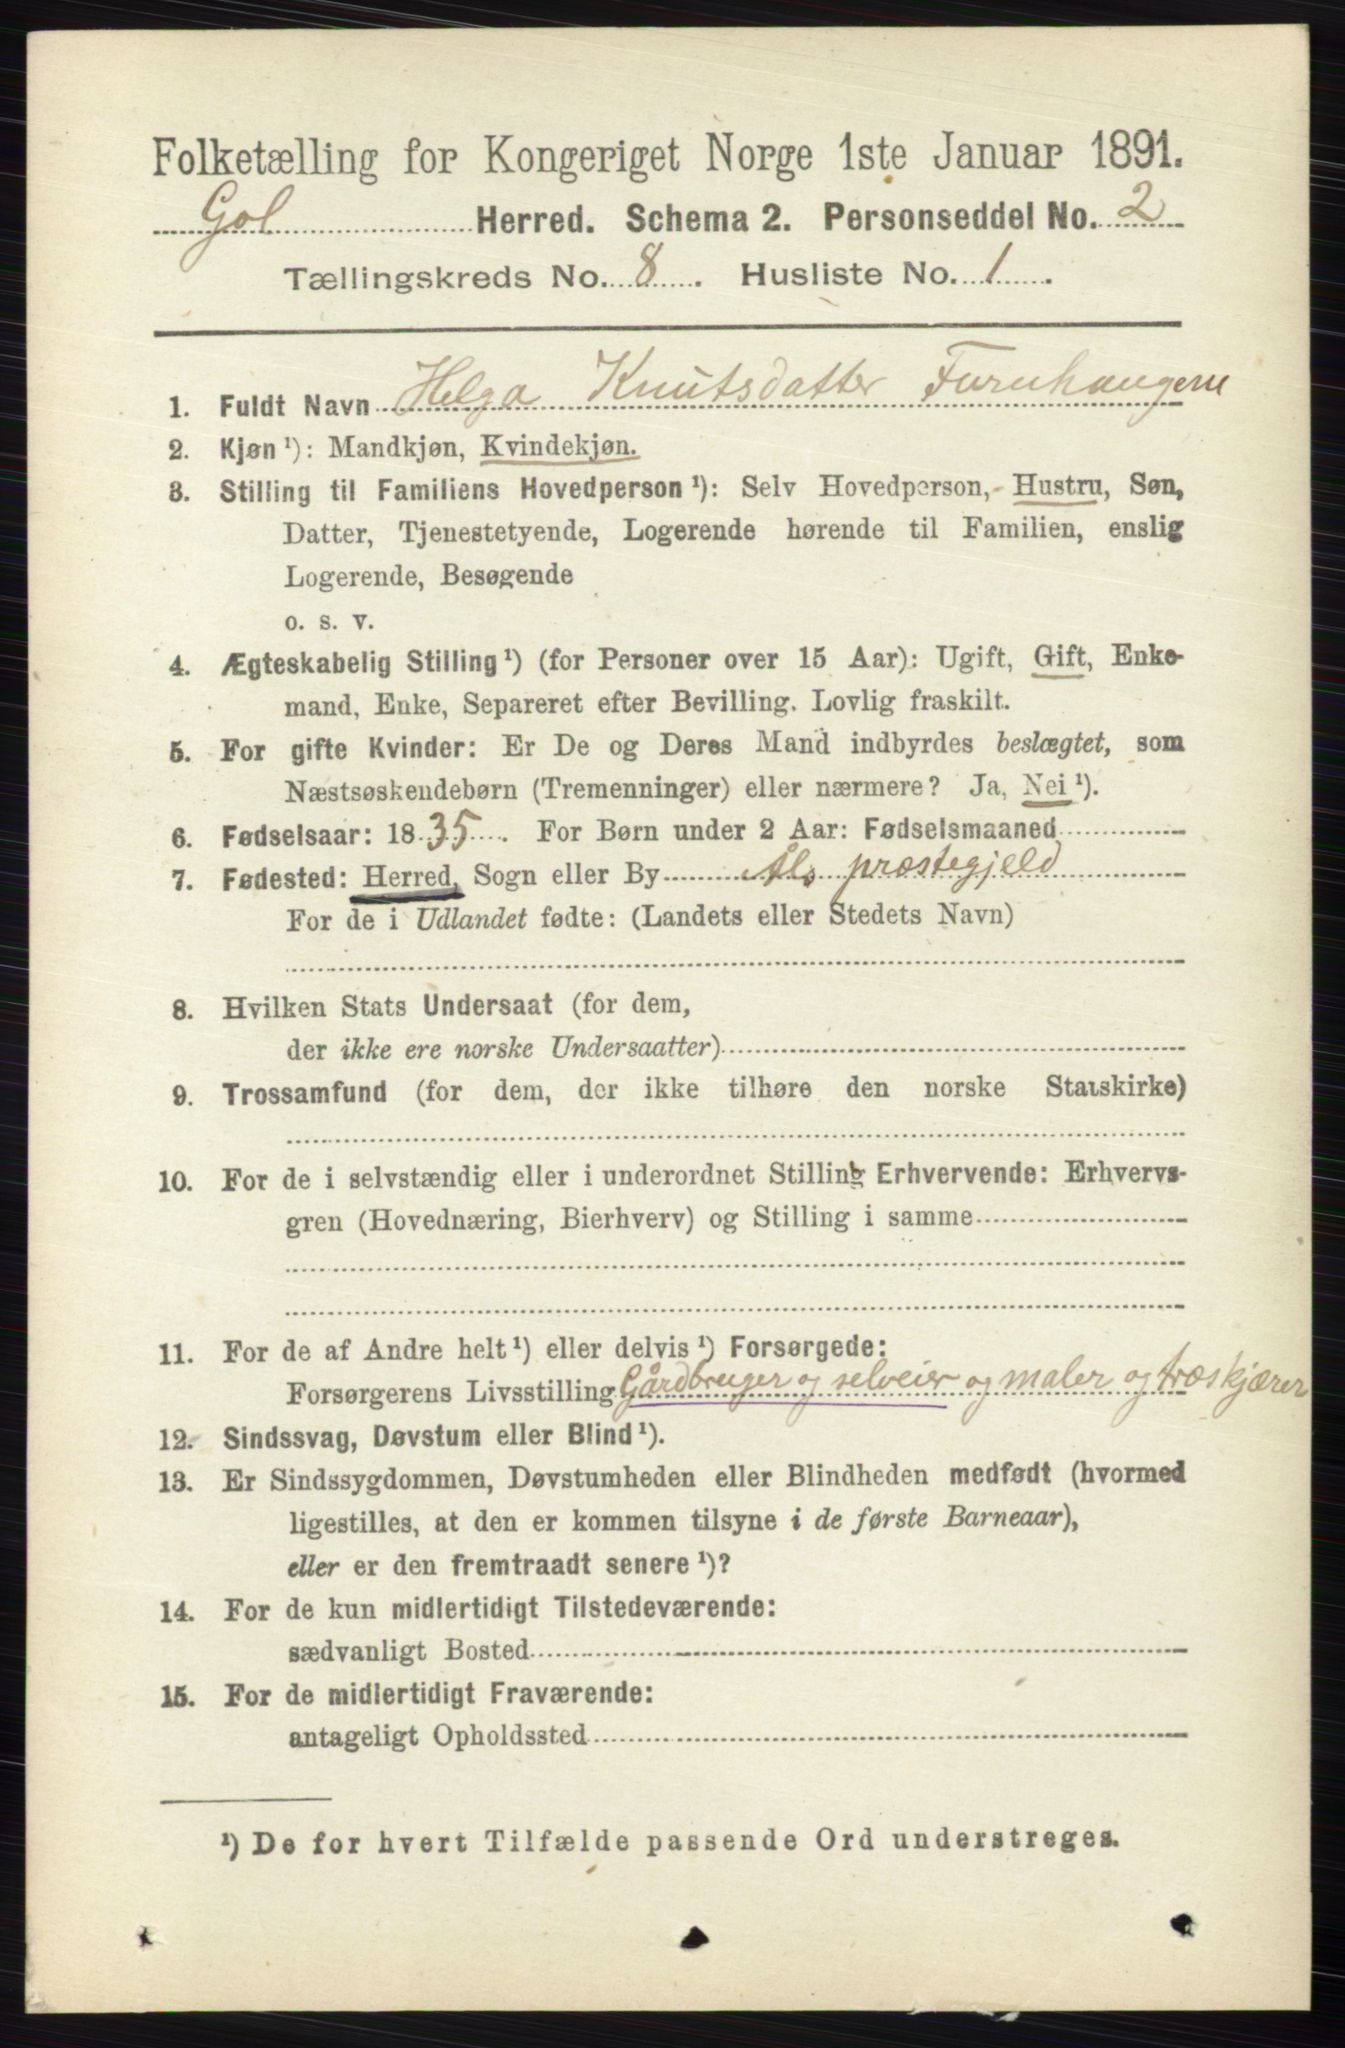 Folketælling for Kongeriget Norge 1ste Januar 1891.
Gol Herred. Schema 2. Personseddel No. 2
Tællingskreds No. 8. Husliste No. 1.
1. Fuldt Navn Helga Knutsdatter Furuhaugene
2. Kjøn ¹): Mandkjøn, Kvindekjøn.
3. Stilling til Familiens Hovedperson ¹): Selv Hovedperson, Hustru, Søn,
Datter, Tjenestetyende, Logerende hørende til Familien, enslig
Logerende, Besøgende
o. s. v.
4. Ægteskabelig Stilling ¹) (for Personer over 15 Aar): Ugift, Gift, Enke-
mand, Enke, Separeret efter Bevilling. Lovlig fraskilt.
5. For gifte Kvinder: Er De og Deres Mand indbyrdes beslægtet, som
Næstsøskendebørn (Tremenninger) eller nærmere? Ja, Nei ¹).
6. Fødselsaar: 1835. For Børn under 2 Aar: Fødselsmaaned
7. Fødested: Herred, Sogn eller By Åls præstegjeld
For de i Udlandet fødte: (Landets eller Stedets Navn)
8. Hvilken Stats Undersaat (for dem,
der ikke ere norske Undersaatter)
9. Trossamfund (for dem, der ikke tilhøre den norske Statskirke)
10. For de i selvstændig eller i underordnet Stilling Erhvervende: Erhvervs-
gren (Hovednæring, Bierhverv) og Stilling i samme
11. For de af Andre helt ¹) eller delvis ¹) Forsørgede:
Forsørgerens Livsstilling Gårdbruger og selveier og maler og træskjærer
12. Sindssvag, Døvstum eller Blind ¹).
13. Er Sindssygdommen, Døvstumheden eller Blindheden medfødt (hvormed
ligestilles, at den er kommen tilsyne i de første Barneaar),
eller er den fremtraadt senere ¹)?
14. For de kun midlertidigt Tilstedeværende:
sædvanligt Bosted
15. For de midlertidigt Fraværende:
antageligt Opholdssted
¹) De for hvert Tilfælde passende Ord understreges.